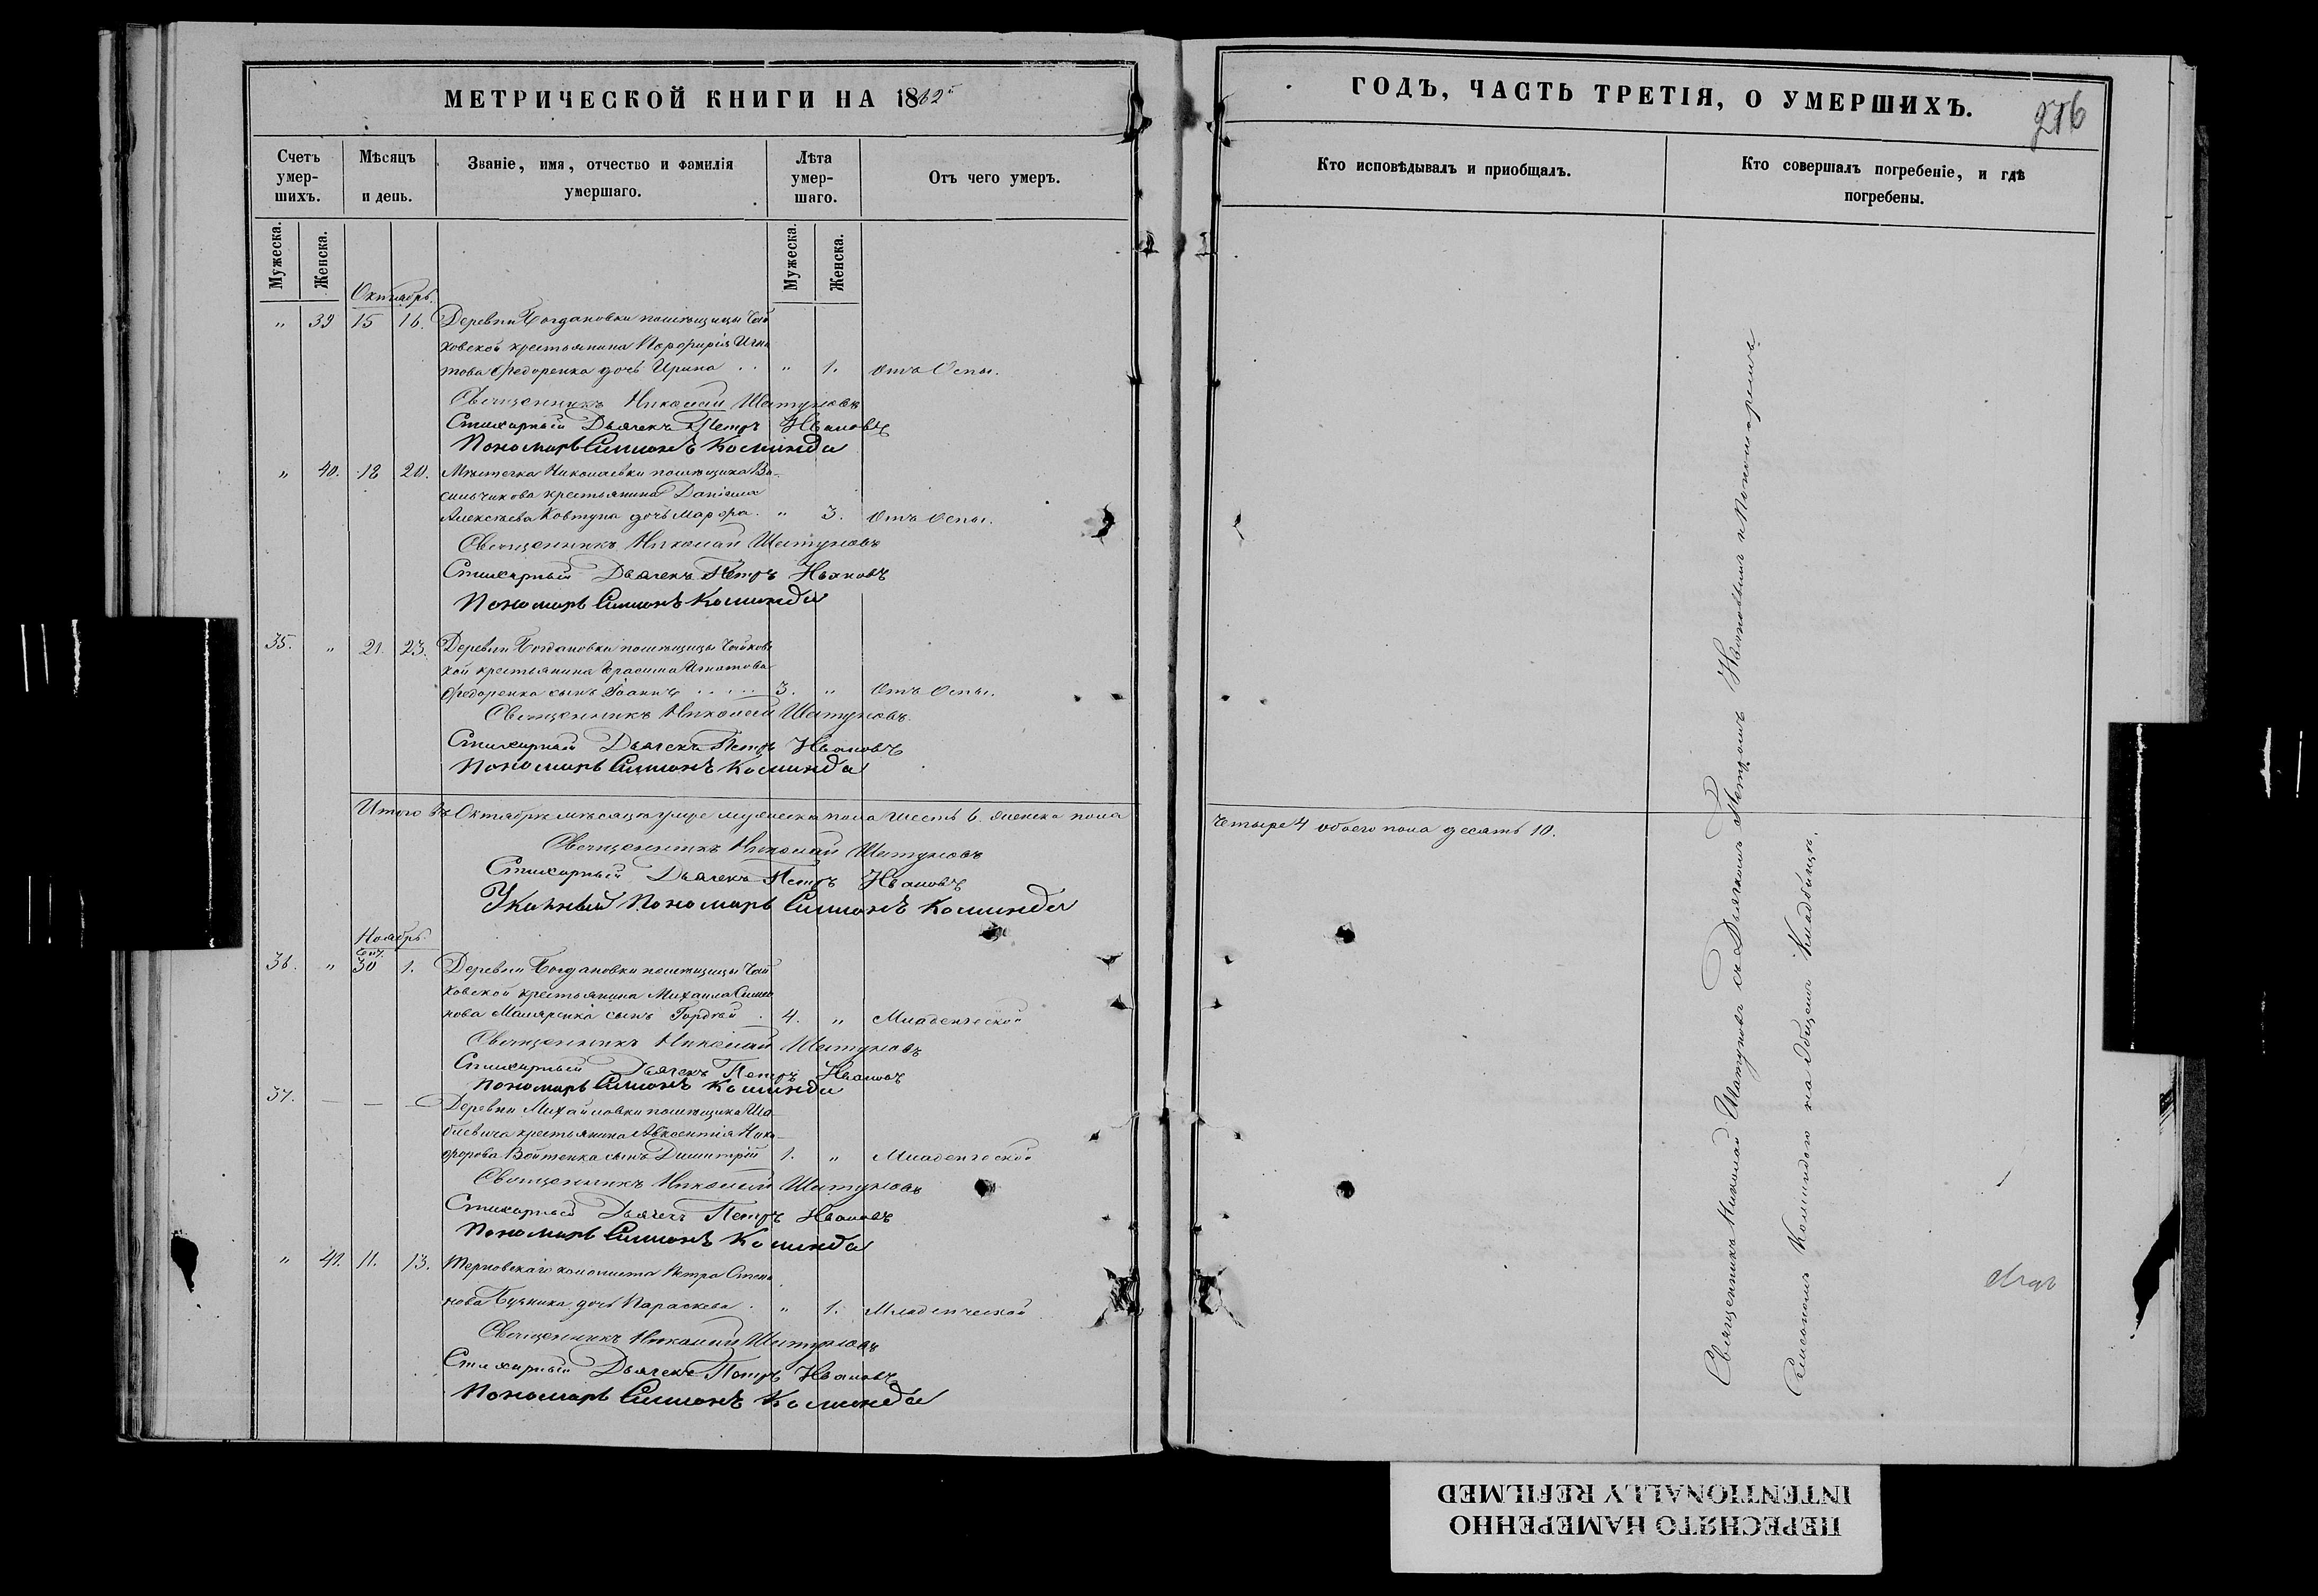 МЕТРИЧЕСКОЙ КНИГИ НА 1862й
Счетъ умер-шихъ.
Мѣсяцъ и день.
Званіе, имя, отчество и фамилія умершаго.
Лѣта умер-шаго.
Отъ чего умеръ.
Мужеска. Женска. Мужеска. Женска.
Октябрь.
" 39 15 16. Деревни Богдановки помѣщицы Чай
ковской крестьянина Порфирія Игна
това Федоренка дочь Ирина . . " 1. Отъ Оспы.
Священникъ Николай Шатуновъ
Стихарный Дьячекъ Петръ Ивановъ
Пономарь Симонъ Коминда
" 40. 18 20. Мѣстечка Николаевки помѣщика Ва-
сильчикова крестьянина Даніила
Алексѣева Ковтуна дочь Марфа. " 3. Отъ Оспы.
Священникъ Николай Шатуновъ
Стихарный Дьячекъ Петръ Ивановъ
Пономарь Симонъ Коминда
35. " 21. 23. Деревни Богдановки помѣщицы Чайковс
кой крестьянина Герасима Игнатова
Федоренка сынъ Іоаннъ . . . . . 3. " Отъ Оспы.
Священникъ Николай Шатуновъ.
Стихарный Дьячекъ Петръ Ивановъ
Пономарь Симонъ Коминда
Итого въ Октябрѣ мѣсяцѣ умре мужеска пола шесть 6. женска пола
Священникъ Николай Шатуновъ
Стихарный Дьячекъ Петръ Ивановъ
Указный Пономарь Симонъ Коминда
Ноябрь.
36. " 30 1. Деревни Богдановки помѣщицы Чай
ковской крестьянина Михаила Симо
нова Маляренка сынъ Гордѣй . 4. " Младенческой
Священникъ Николай Шатуновъ
Стихарный Дьячекъ Петръ Ивановъ
Пономарь Симонъ Коминда
37. — — — Деревни Михайловки помѣщика
крестьянина Авксентія Ники-
форова Войтенка сынъ Димитрій 1. " Младенческой
Священникъ Николай Шатуновъ
Стихарный Дьячекъ Петръ Ивановъ
Пономарь Симонъ Коминда
" 41. 11. 13. Терновскаго колониста Петра Степа
нова дочь Параскева . " 1. Младенческой
Священникъ Николай Шатуновъ
Стихарный Дьячекъ Петръ Ивановъ
Пономарь Симонъ Коминда
ГОДЪ, ЧАСТЬ ТРЕТІЯ, О УМЕРШИХЪ.
276
Кто исповѣдывалъ и приобщалъ.
Кто совершалъ погребеніе, и гдѣ погребены.
четыре 4 обоего пола десять 10.
Священникъ Николай Шатуновъ съ Дьячкомъ Петромъ Ивановымъ и Пономаремъ
Симономъ Коминдою на Общемъ Кладбищѣ.
ПЕРЕСНЯТО НАМЕРЕННО
INTENTIONALLY REFILMED